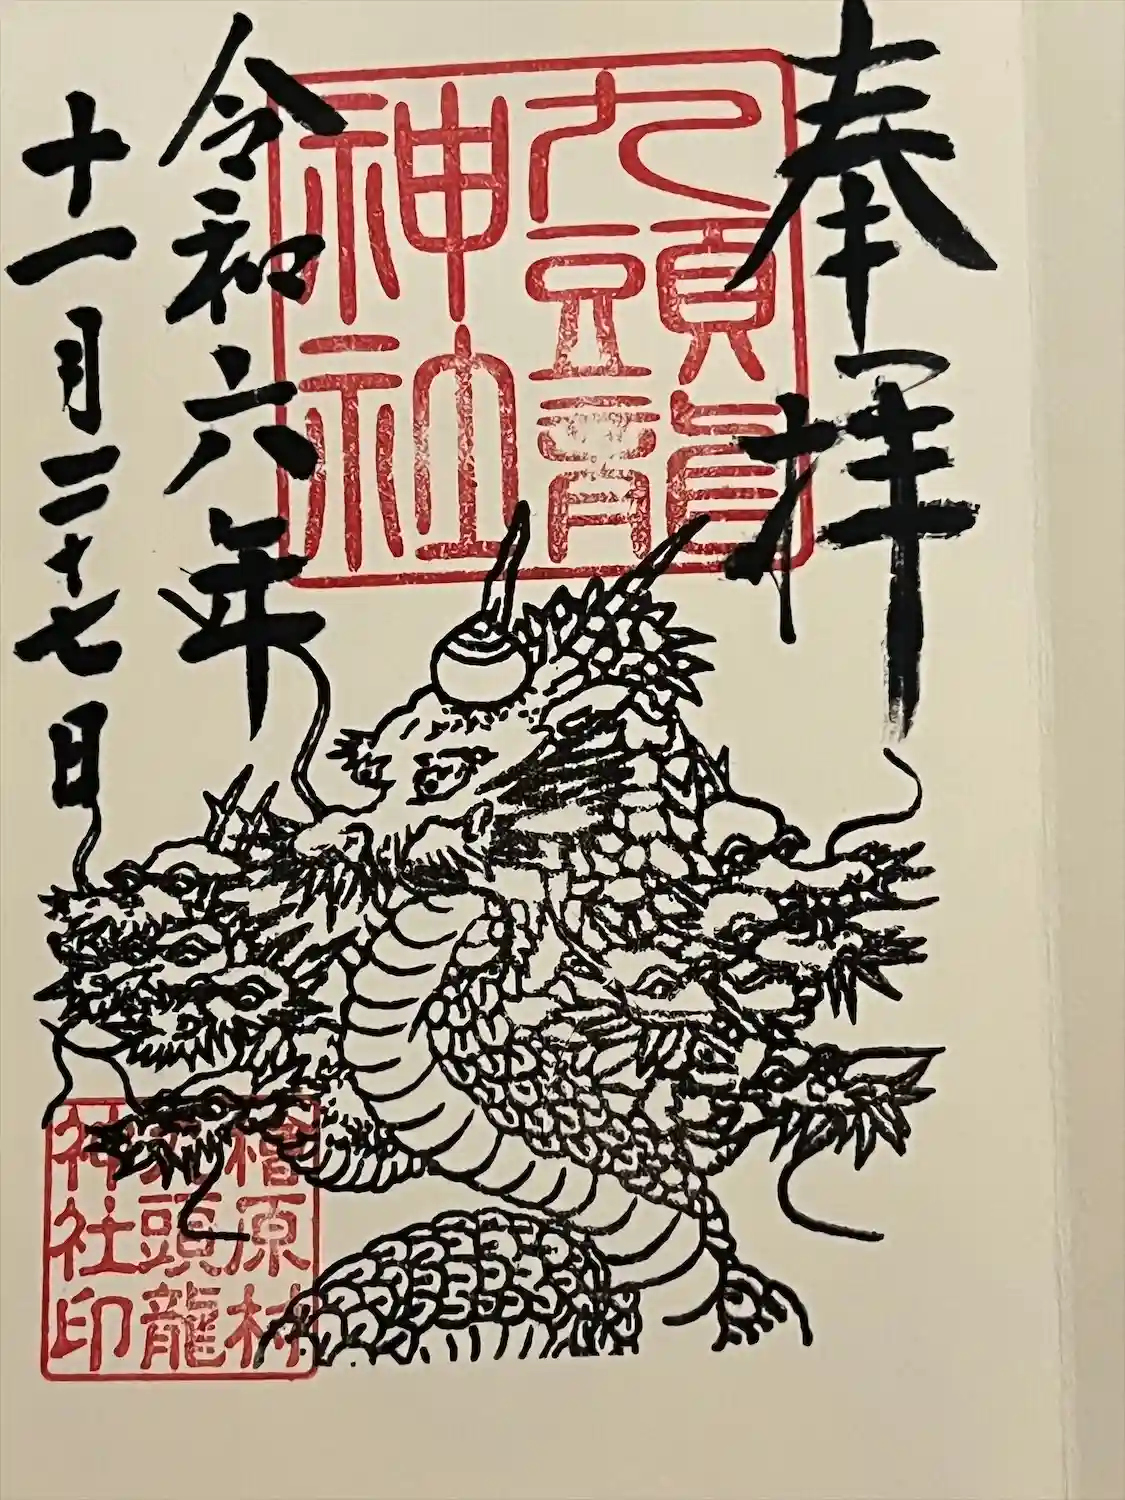 奉拝
九頭龍
神社
令和六年
十一月二十七日
檜原村
九頭龍
神社印